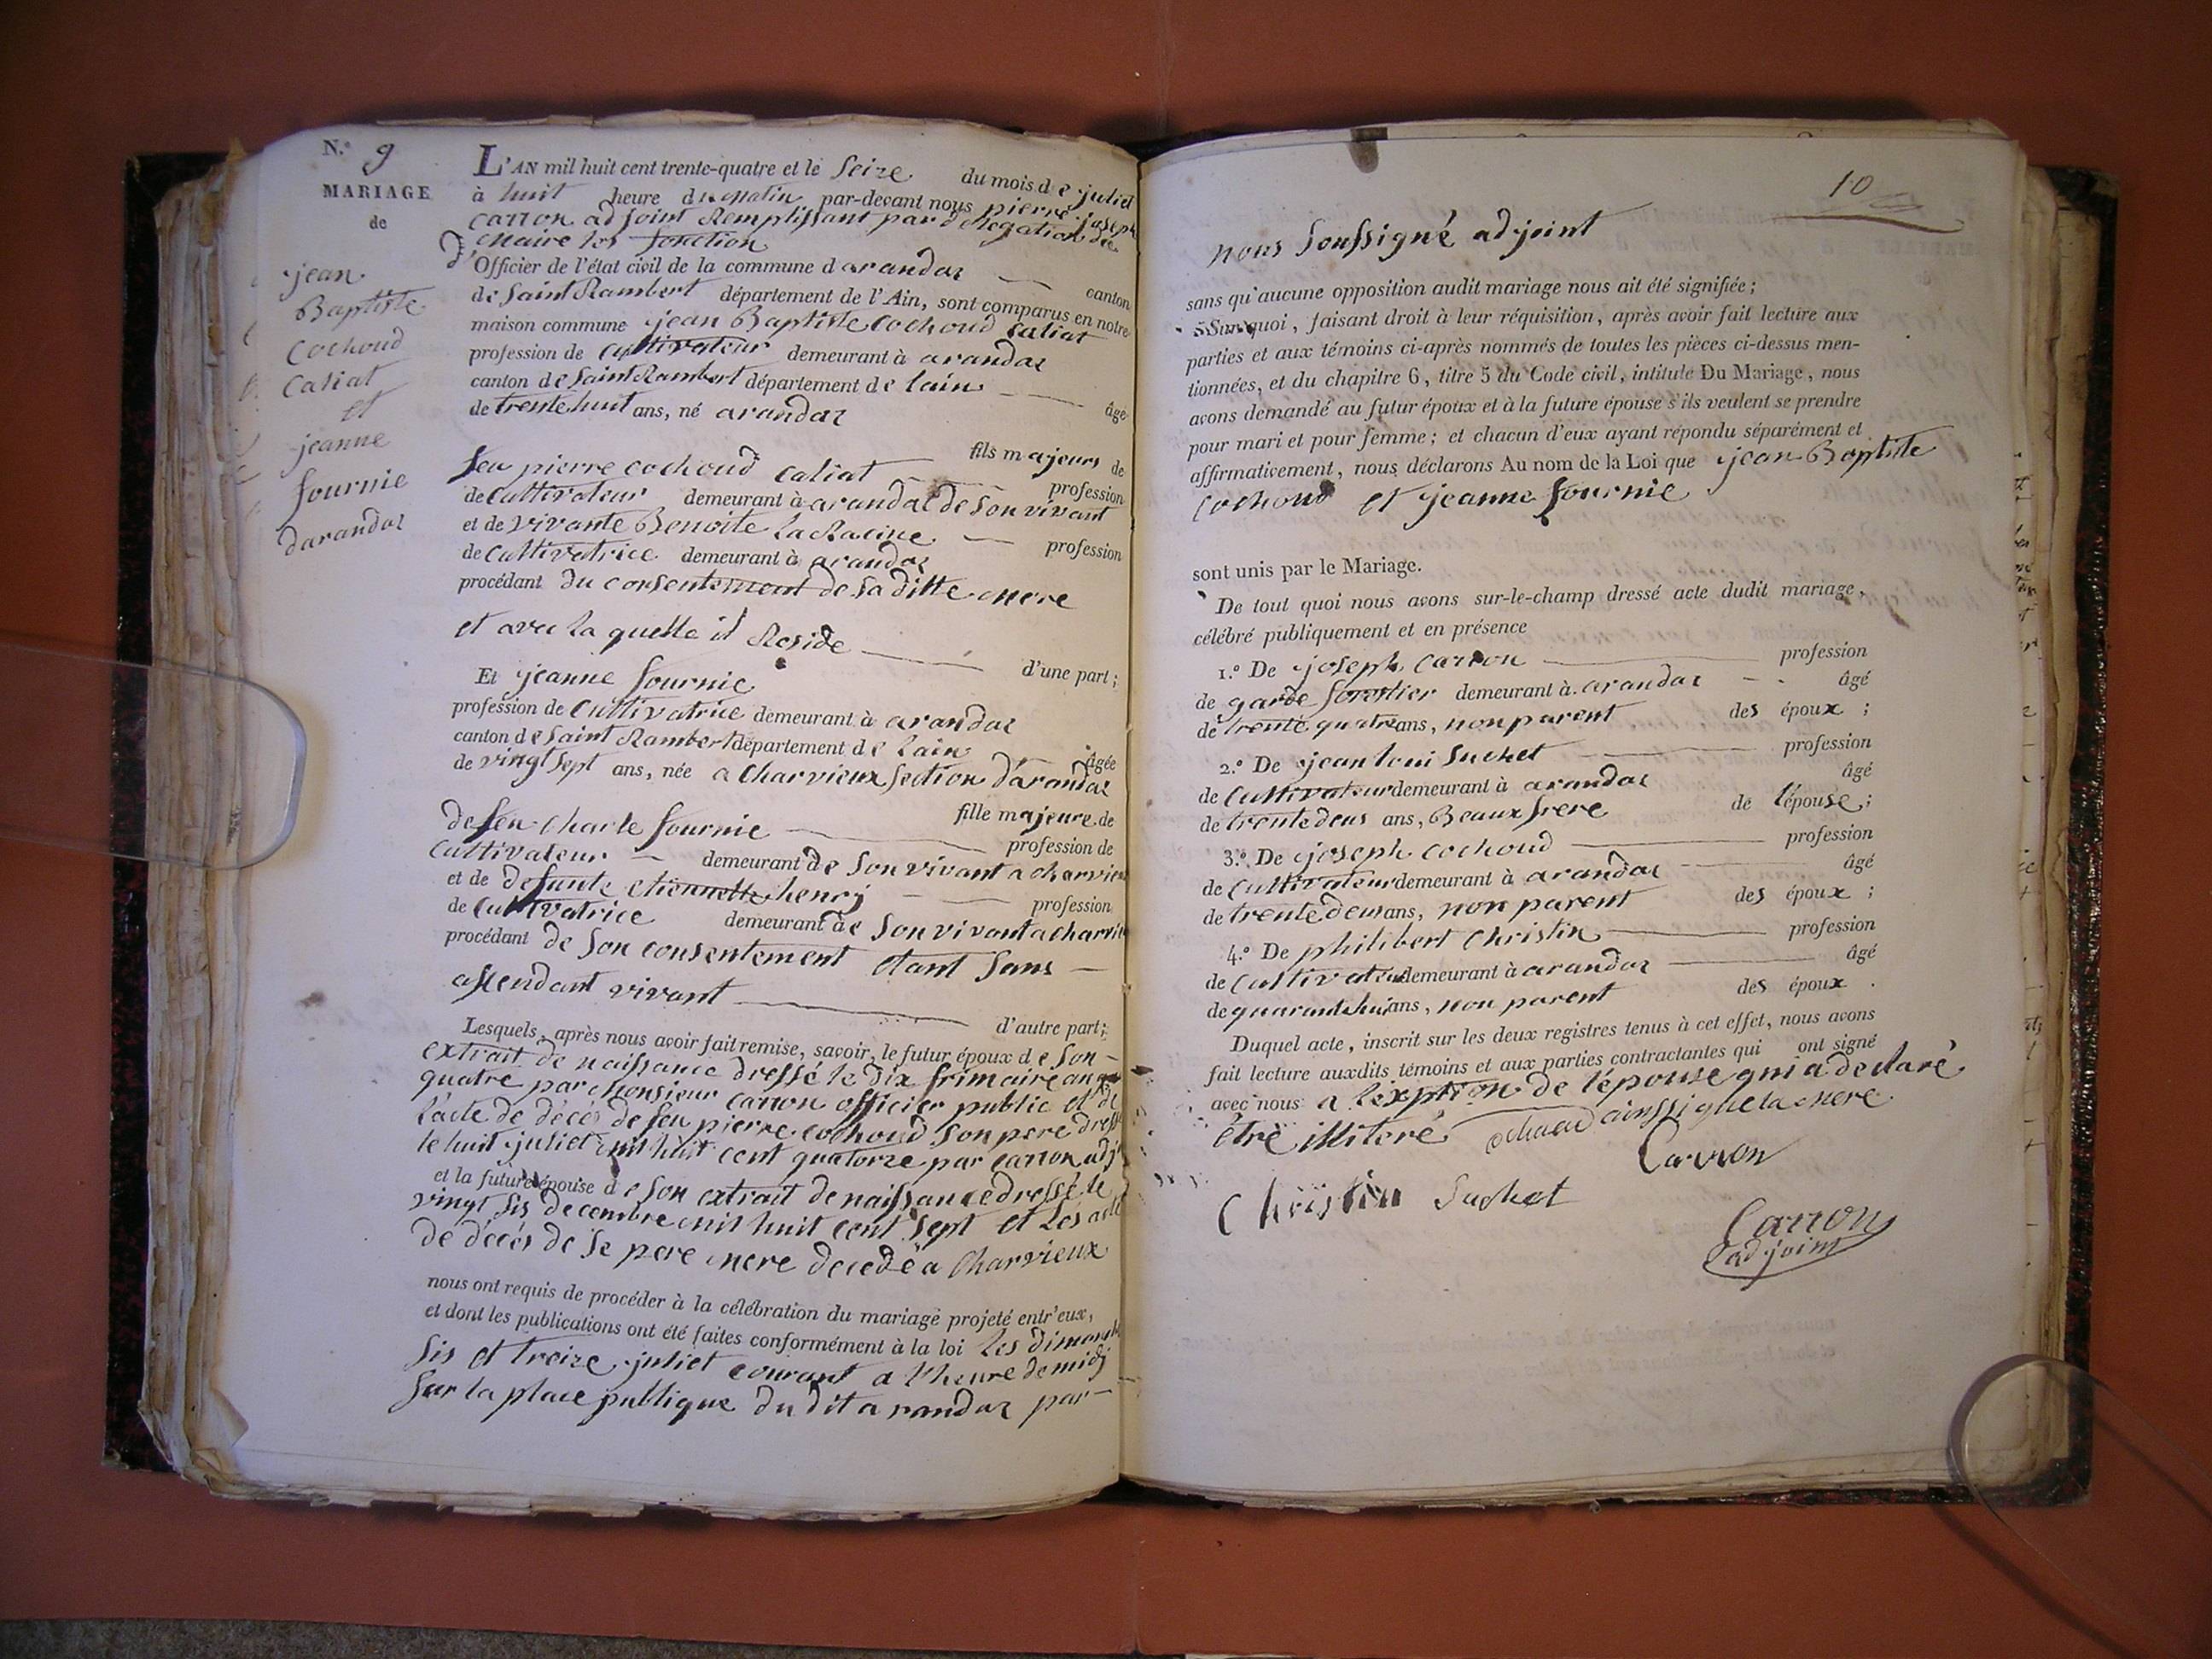 N.° 9
MARIAGE
de
jean
Baptiste
Cochoud
Caliat
et
jeanne
fournie
darandas
L'AN mil huit cent trente-quatre et le Seize du mois de juliet
à huit heure du matin par-devant nous pierre joseph
carron adjoint Remplissant par délégation du
maire les fonction
d'Officier de l'état civil de la commune d arandas canton
de Saint Rambert département de l'Ain, sont comparus en notre
maison commune jean Baptiste Cochoud Caliat
profession de Cultivateur demeurant à arandas
canton de Saint Rambert département de lain âgé
de trente huit ans, né arandas
fils majeurs de
feu pierre cochoud caliat profession
de Cultivateur demeurant à arandas de Son vivant
et de vivante Benoite La Racine profession
de Cultivatrice demeurant à arandas
procédant du consentement de sa ditte mere
et avec la quelle il Reside
d'une part;
Et jeanne fournie
profession de Cultivatrice demeurant à arandas
canton de Saint Rambert département de lain âgée
de vingt Sept ans, née a Charvieux Section d'arandas
fille majeure de
de feu Charle fournie profession de
Cultivateur demeurant de Son vivant a charvieu
et de defunte etiennette henrj profession
de Cultivatrice demeurant de Son vivant a charvi
procédant de Son consentement etant Sans
assendant vivant
d'autre part;
Lesquels, après nous avoir fait remise, savoir, le futur époux de Son
extrait de naissance dressé le dix frimaire an
quatre par Monsieur carron officier public et de
l'acte de décés de feu pierre cochoud Son pere dressé
le huit juliet mil huit cent quatorze par carron adj
et la future épouse de Son extrait de naissance dressé le
vingt Sis decembre mil huit cent Sept et Les acte
de décés de Se pere mere decedé a Charvieux
nous ont requis de procéder à la célébration du mariage projeté entr'eux,
et dont les publications ont été faites conformément à la loi Les dimanche
Sis et treize juliet courant a l'heure de midj
Sur la place publique du dit arandas par
10
nous Soussigné adjoint
sans qu'aucune opposition audit mariage nous ait été signifiée;
Sur quoi, faisant droit à leur réquisition, après avoir fait lecture aux
parties et aux témoins ci-après nommés de toutes les pièces ci-dessus men-
tionnées, et du chapitre 6, titre 5 du Code civil, intitulé Du Mariage, nous
avons demandé au futur époux et à la future épouse s'ils veulent se prendre
pour mari et pour femme; et chacun d'eux ayant répondu séparément et
affirmativement, nous déclarons Au nom de la Loi que jean Baptiste
Cochoud et jeanne fournie
sont unis par le Mariage.
De tout quoi nous avons sur-le-champ dressé acte dudit mariage,
célébré publiquement et en présence
1.° De joseph Carron profession
de garde forestier demeurant à arandas âgé
de trente quatre ans, non parent des époux;
2.° De jean loui Suchet profession
de Cultivateur demeurant à arandas âgé
de trente deus ans, Beaux frere de l'épouse;
3.° De joseph cochoud profession
de Cultivateur demeurant à arandas âgé
de trente deus ans, non parent des époux;
4.° De philibert Christin profession
de Cultivateur demeurant à arandas âgé
de quarante hui ans, non parent des époux.
Duquel acte, inscrit sur les deux registres tenus à cet effet, nous avons
fait lecture auxdits témoins et aux parties contractantes qui ont signé
avec nous a l'exption de l'épouse qui a declaré
être illiteré ainssi que la mere
Carron
Christin Suchet
Carron
adjoint